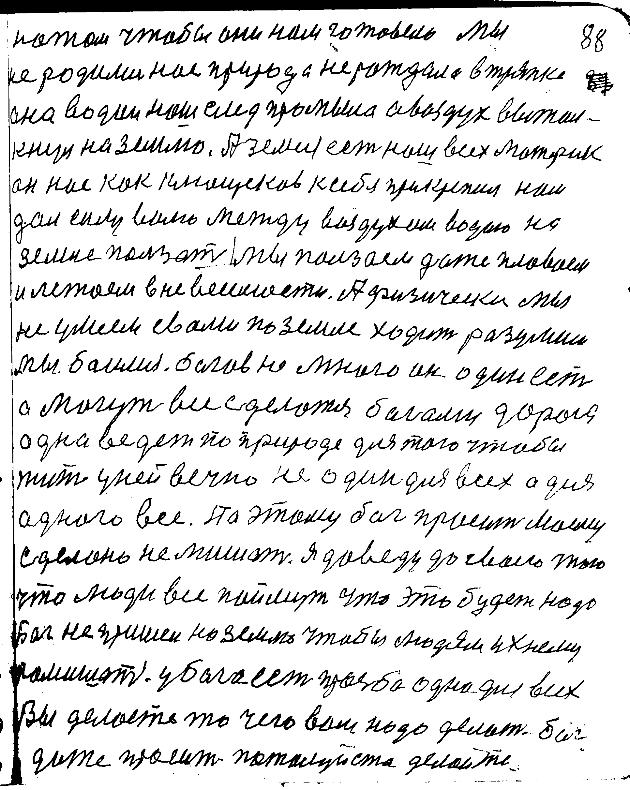 потом чтобы они нам готовели мы 88
не родими нас природа не рождала в тряпке
она водои наш след промыла а воздух вытол-
кнул на землю. А земля ест наш всех матрик
он нас как клощеков к себя прикрепил нам
дал силу волю между воздухом водою на
земле ползат мы ползаем даже плаваем
и летаем в невесимости. А физически мы
не умеем свами по земле ходит разумии
мы. баимся. богов не много он один ест
а могут все сделатя богами дорога
одна ведет по природе для того чтобы
жит у ней вечно не один для всех а для
одного все. По этому бог просит моему
сделоно не мишат. я доведу до своего того
что люди все поймут что это будет надо
Бог не пришел на землю чтобы людям ихнему
помишат. у бога ест прозба одна для всех
Вы делаете то чего вам надо делат. бог
даже просит пожалуйста делайте.